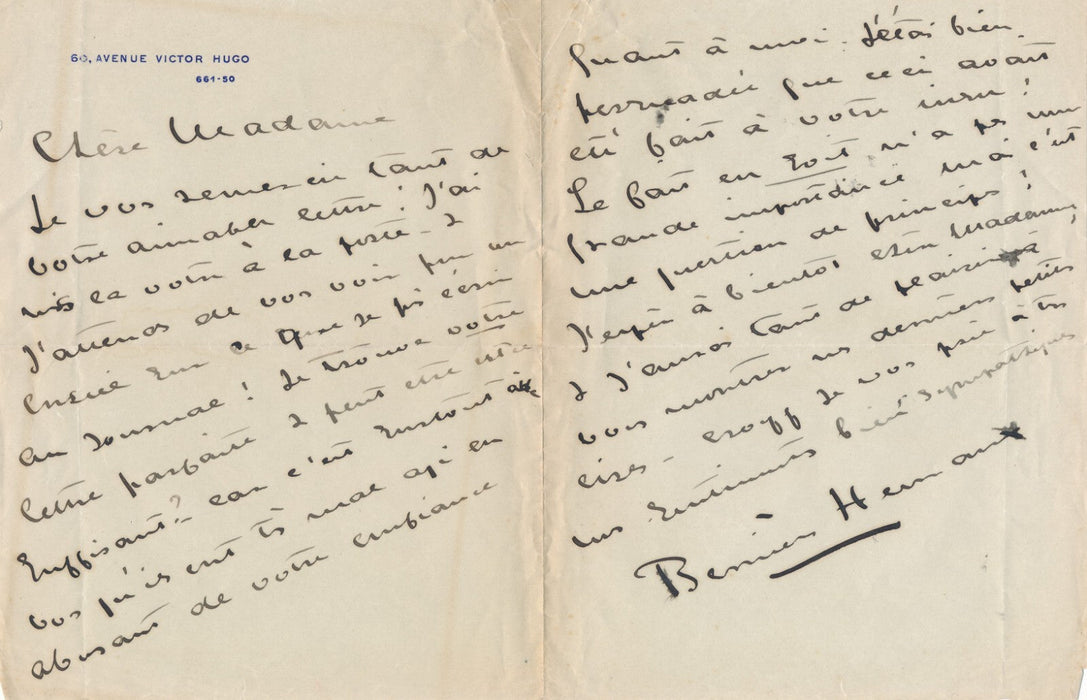 60, AVENUE VICTOR HUGO
661-50
Chère Madame
Je vous remercie tant de
votre aimable lettre ! J'ai
mis la votre à la poste - &
J'attends de vous voir pour un
conseil sur ce que je puis écrire
au Journal ! Je trouve votre
lettre parfaite & peut être est-ce
suffisant ? - car c'est surtout avec
vous qu'ils ont très mal agi en
abusant de votre confiance
Quant à moi. J'étais bien
persuadée que ceci avait
été fait à votre insu !
Le fait en soit n'a pas une
grande importance mais c'est
une question de principe !
J'espère à bientôt chère Madame,
& J'aurais tant de plaisir à
vous montrer mes dernières petites
cires - Je vous prie à très
mes sentiments bien sympathiques
Bernières Henraux